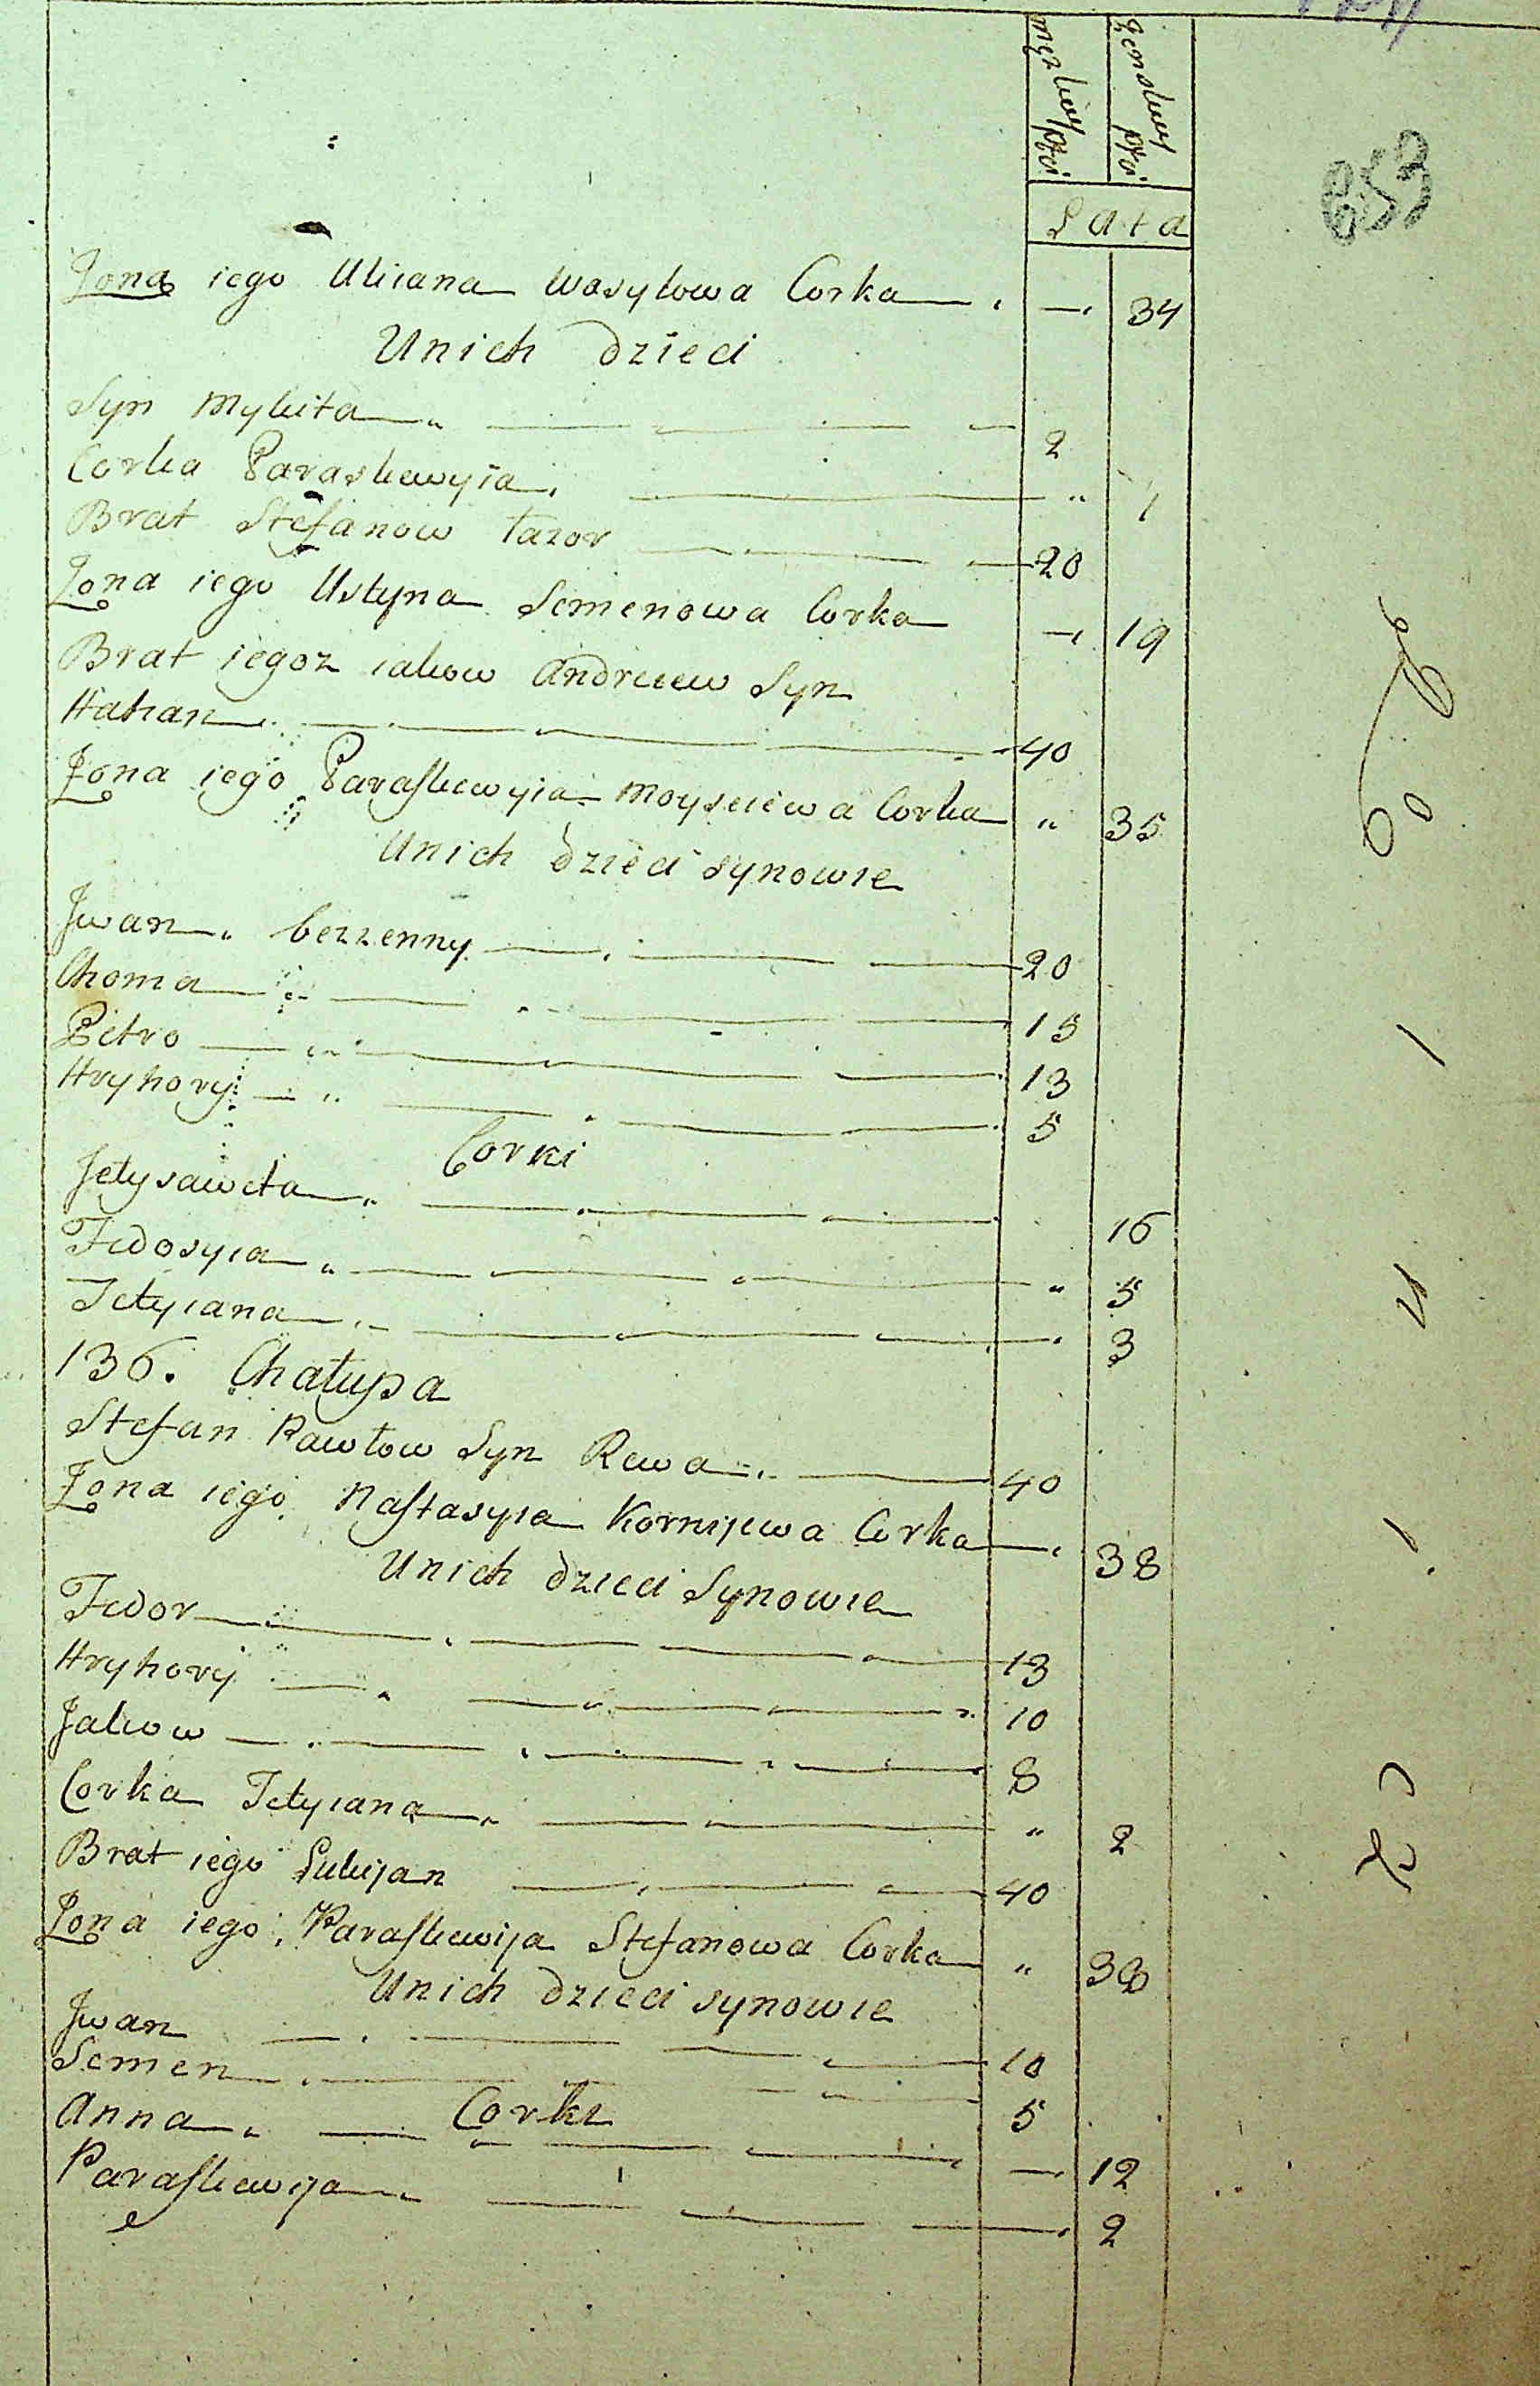 męzkiey płci żenskiey płci
Lata
Żona iego Uliana Wasylowa Corka — 34
Unich dzieci
Syn Mykita 2
Corka Paraskewyia " 1
Brat Stefanow Łazor 20
Żona iego Ustyna Semenowa Corka — 19
Brat iegoz iakow Andreiew Syn
Hahan 40
Żona iego Paraskewyia Moyseiewa Corka " 35
Unich dzieci synowie
Jwan bezzenny 20
Choma 15
Petro 13
Hryhory 5
Corki
Jelysaweta 16
Fedosyia " 5
Tetyiana 3
136. Chałupa
Stefan Pawłow Syn Rewa 40
Żona iego Nastasyia Kornijewa Corka — 38
Unich dzieci Synowie
Fedor 13
Hryhorij 10
Jakow 8
Corka Tetyiana " 2
Brat iego Lukijan 40
Żona iego Paraskewija Stefanowa Corka " 38
Unich dzieci synowie
Jwan 10
Semen 5
Corki
Anna — 12
Paraskewija — 2